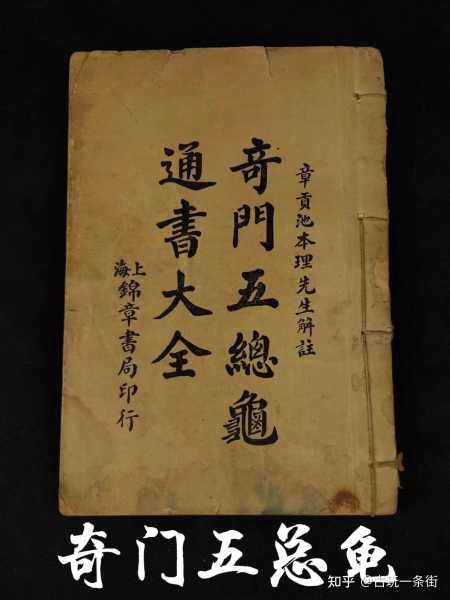 章貢池本理先生解註
奇門五總龜
通書大全
上海
錦章書局印行
奇门五总龟
知乎 @古玩一条街